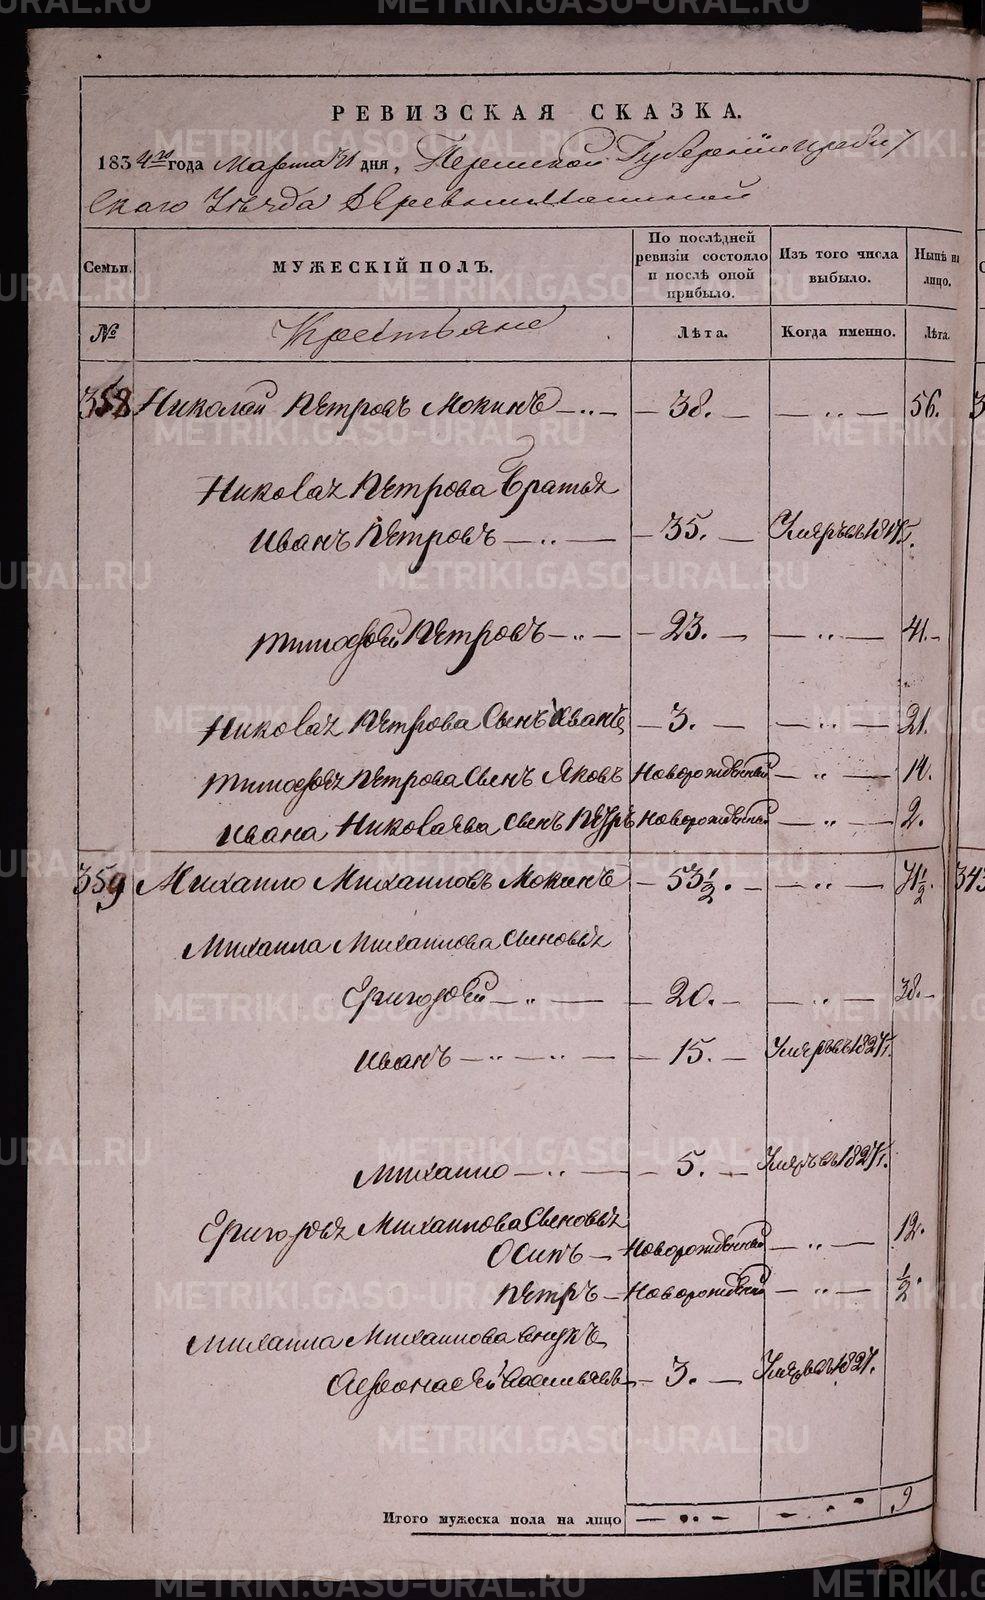 РЕВИЗСКАЯ СКАЗКА.
1834го года Марта 21 дня, Пермской Губернии Ирбит
скаго Уезда Деревни Мокиной
Семьи. МУЖЕСКІЙ ПОЛЪ. По послѣдней ревизіи состояло и послѣ оной прибыло. Изъ того числа выбыло. Нынѣ на лицо.
№ Крестьяне Лѣта. Когда именно. Лѣта.
358 Николай Петровъ Мокинъ — 38. — — „ — 56.
Николая Петрова братья
Иванъ Петровъ — 35. — Умеръ въ 181
Тимофей Петровъ — 23. — — „ — 41.
Николая Петрова сынъ Иванъ — 3. — — „ — 21.
Тимофея Петрова сынъ Яковъ Новорожденный — „ — 14.
Ивана Николаева сынъ Петръ Новорожденный — „ — 2.
359 Михайло Михайловъ Мокинъ — 53 1/2. — — „ — 71 1/2.
Михаила Михайлова сыновья
Григорей — „ — — 20. — — „ — 38.
Иванъ — „ — „ — — 15. — Умеръ въ 1827г.
Михайло — „ — — 5. — Умеръ въ 1827г.
Григорья Михайлова сыновья
Осипъ — Новорожденный — „ — 12.
Петръ — Новорожденный — „ — 1/2.
Михаила Михайлова внукъ
Афонасей Васильевъ — 3. — Умеръ въ 1827.
Итого мужеска пола на лицо — „ — — „ — 9
METRIKI.GASO-URAL.RU